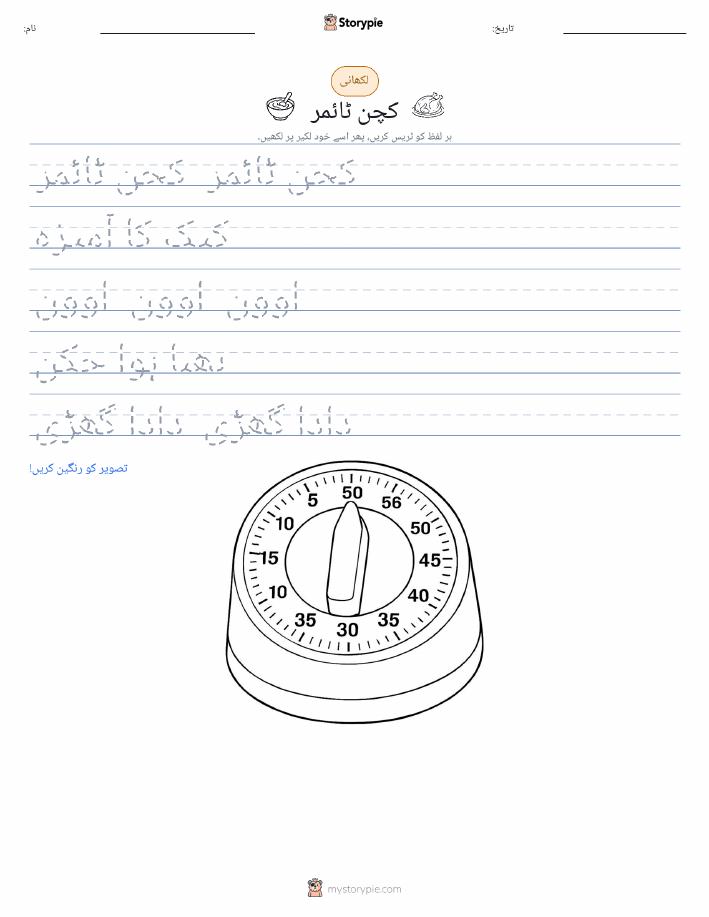 نام:
تاریخ:
Storypie
لکھائی
کچن ٹائمر
ہر لفظ کو ٹریس کریں، پھر اسے خود لکیر پر لکھیں۔
کچن ٹائمر کچن ٹائمر
کیک کا آمیزہ
اوون اوون اوون
بھنا ہوا چکن
دادا گھڑی دادا گھڑی
تصویر کو رنگین کریں!
50
5 56
10 50
15 45
10 40
35 35
30
mystorypie.com